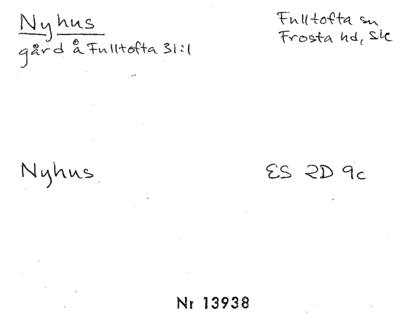 Nyhus
Fulltofta sn
gård å Fulltofta 31:1
Frosta hd, Sk
Nyhus
ES 2D 9c
Nr 13938